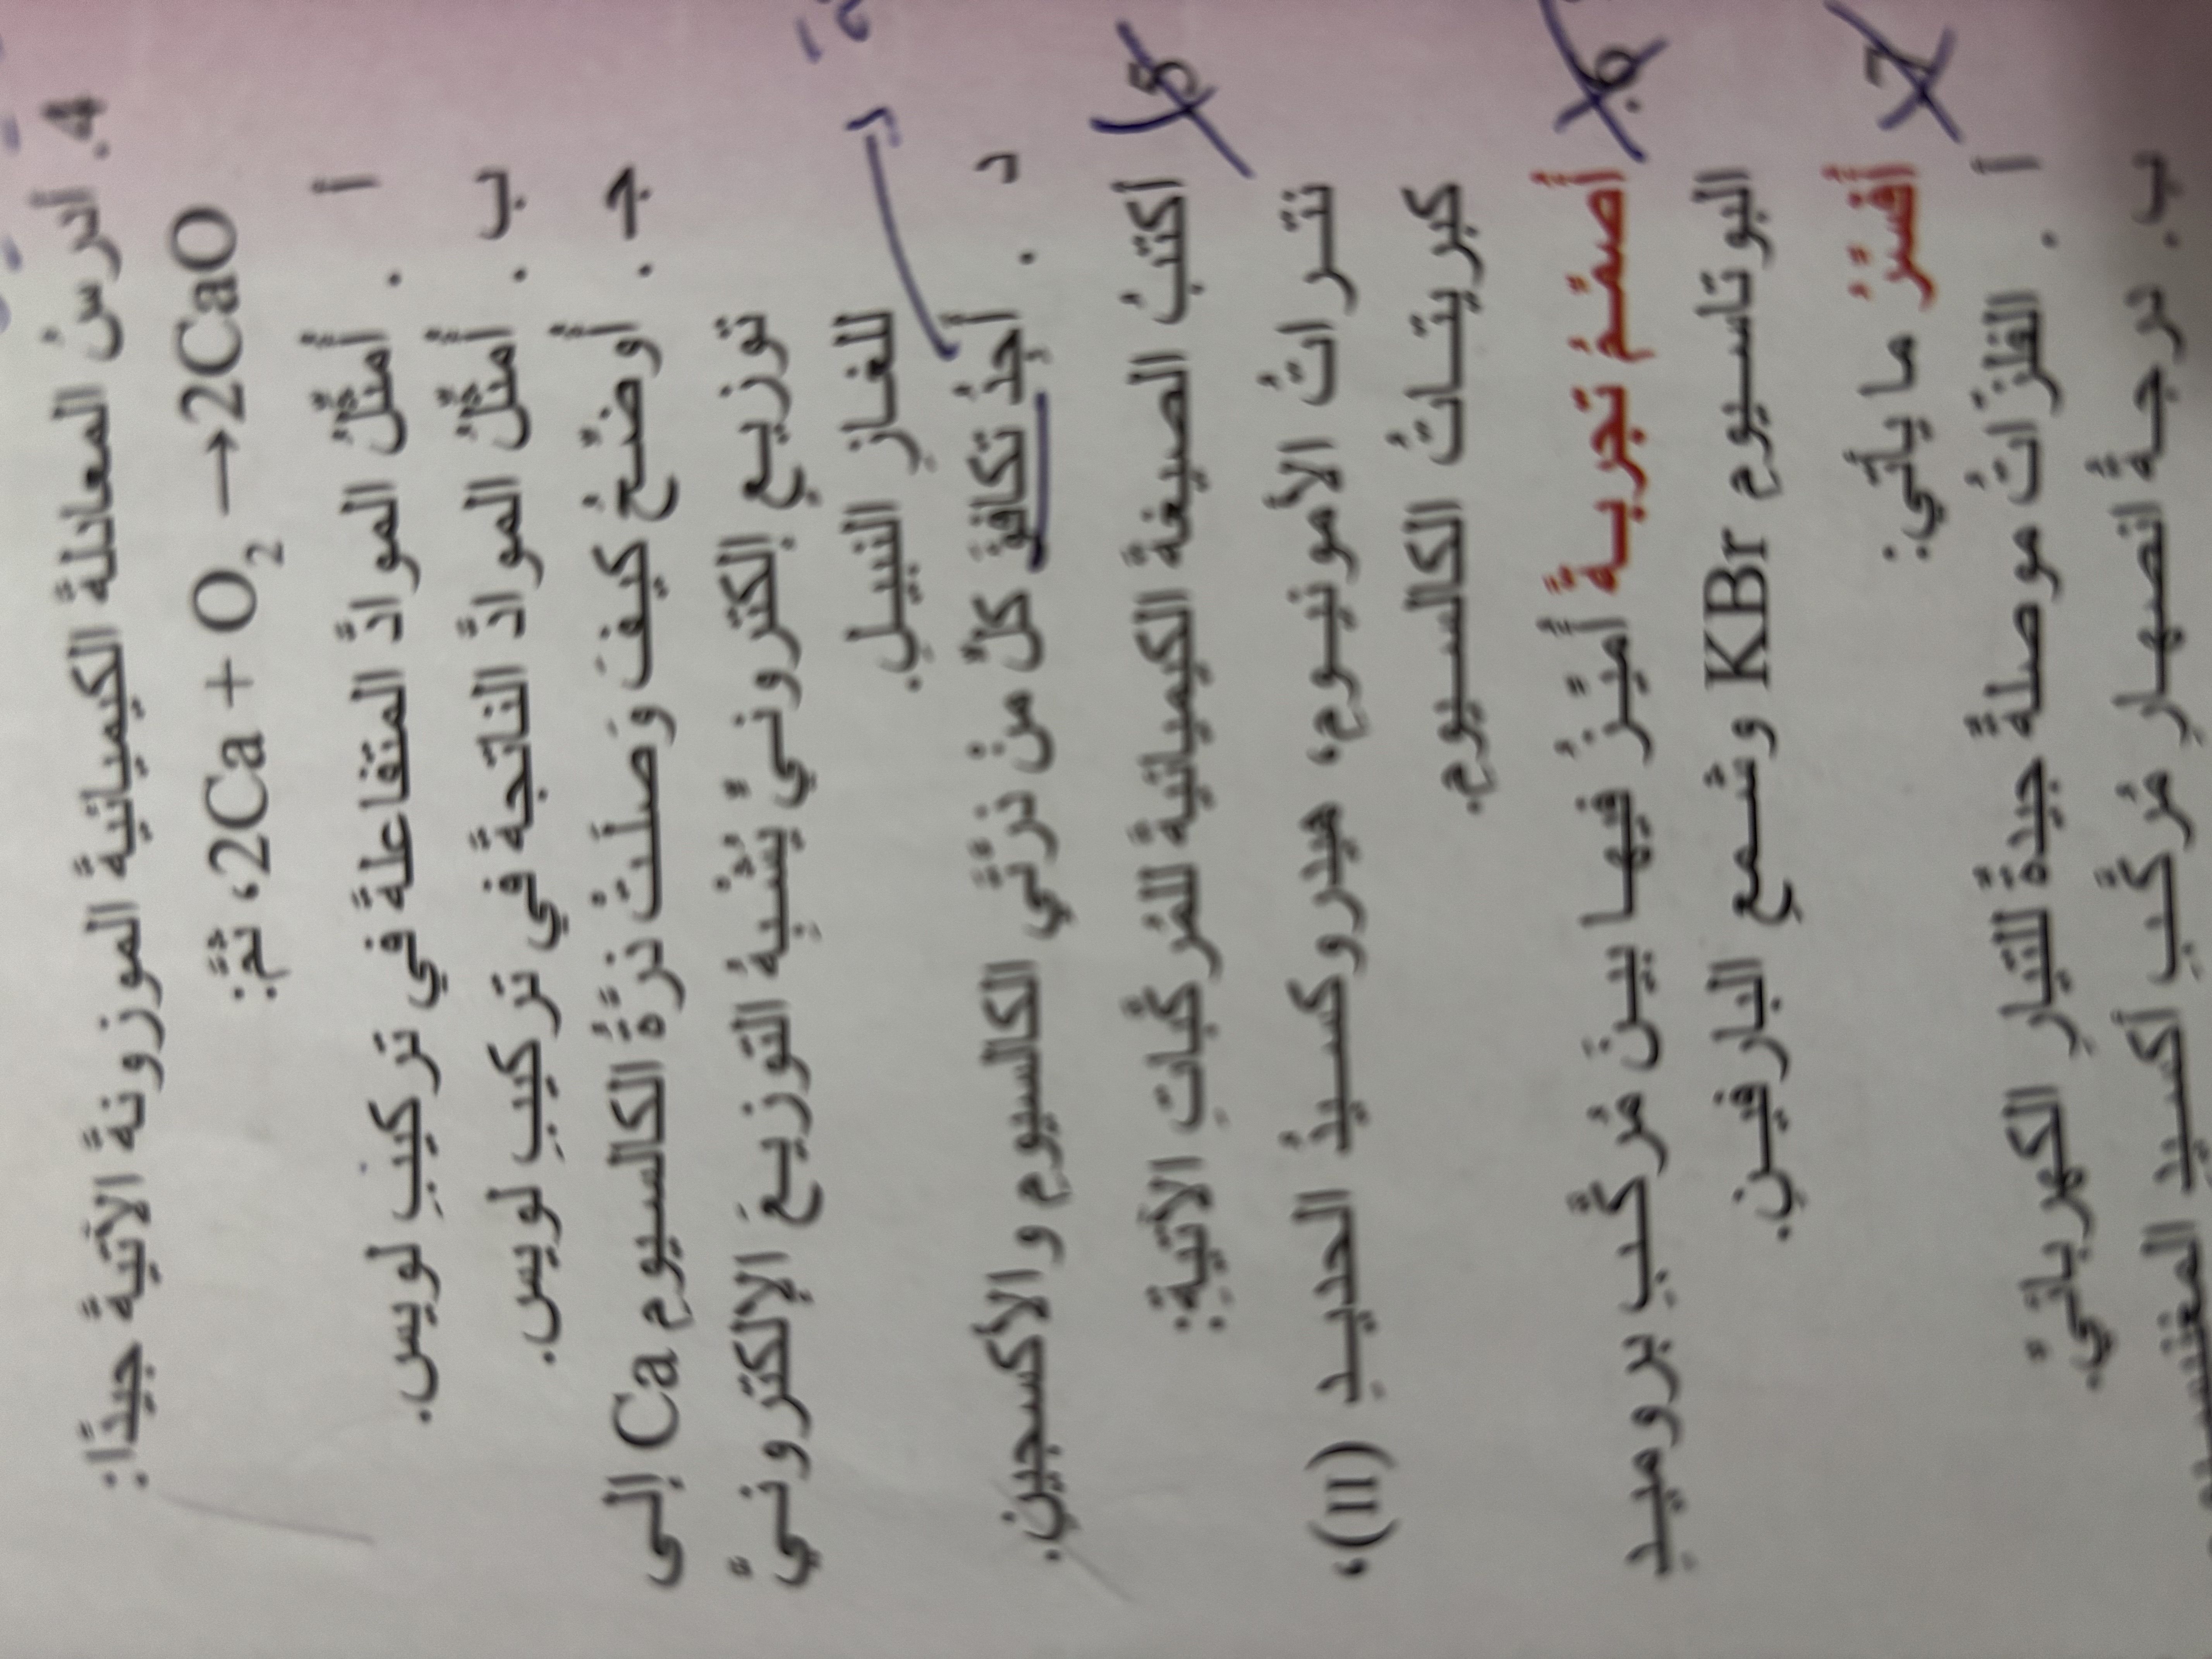 4. أدرسُ المعادلةَ الكيميائيةَ الموزونةَ الآتيةَ جيدًا:
2Ca + O₂ → 2CaO، ثمَّ:
أ . أُمثّلُ الموادَّ المتفاعلةَ في تركيبِ لويس.
ب. أُمثّلُ الموادَّ الناتجةَ في تركيبِ لويس.
جـ. أُوضّحُ كيفَ وَصلَتْ ذرّةُ الكالسيوم Ca إلى
توزيعٍ إلكترونيٍّ يُشْبِهُ التوزيعَ الإلكترونيَّ
للغازِ النبيلِ.
د . أجدُ تكافؤَ كلٍّ منْ ذرّتَي الكالسيوم والأكسجين.
5. أكتبُ الصيغةَ الكيميائيةَ للمُركّباتِ الآتيةِ:
نتراتُ الأمونيوم، هيدروكسيدُ الحديدِ (II)،
كبريتاتُ الكالسيوم.
6. أُصمّمُ تجربةً أُميّزُ فيها بينَ مُركّبِ بروميدِ
البوتاسيوم KBr وشمعِ البارفينِ.
7. أُفسّرُ ما يأتي:
أ . الفلزّاتُ موصلةٌ جيدةٌ للتيارِ الكهربائيِّ.
ب. درجةُ انصهارِ مُركّبِ أكسيدِ المغنيسيوم